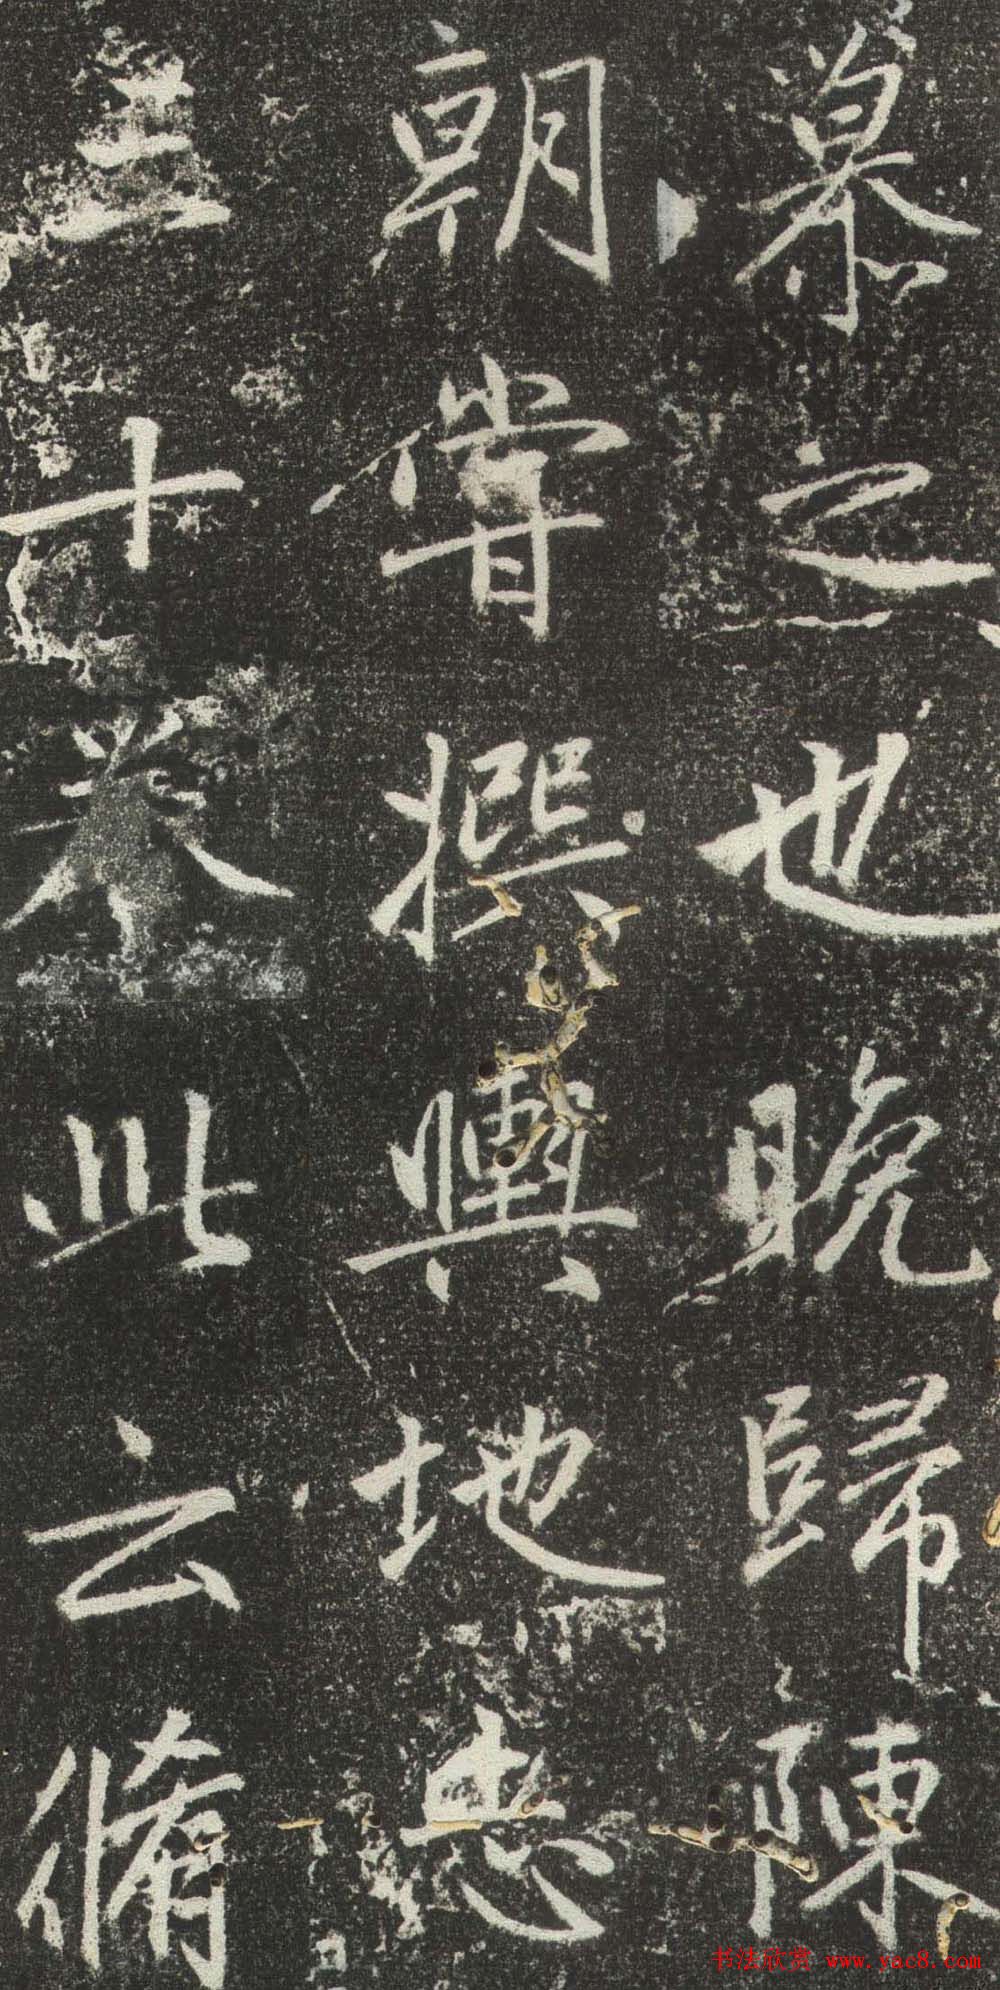 慕之也晚歸陳
朝嘗撰輿地志
三十卷此云脩
书法欣赏 www.yac8.com